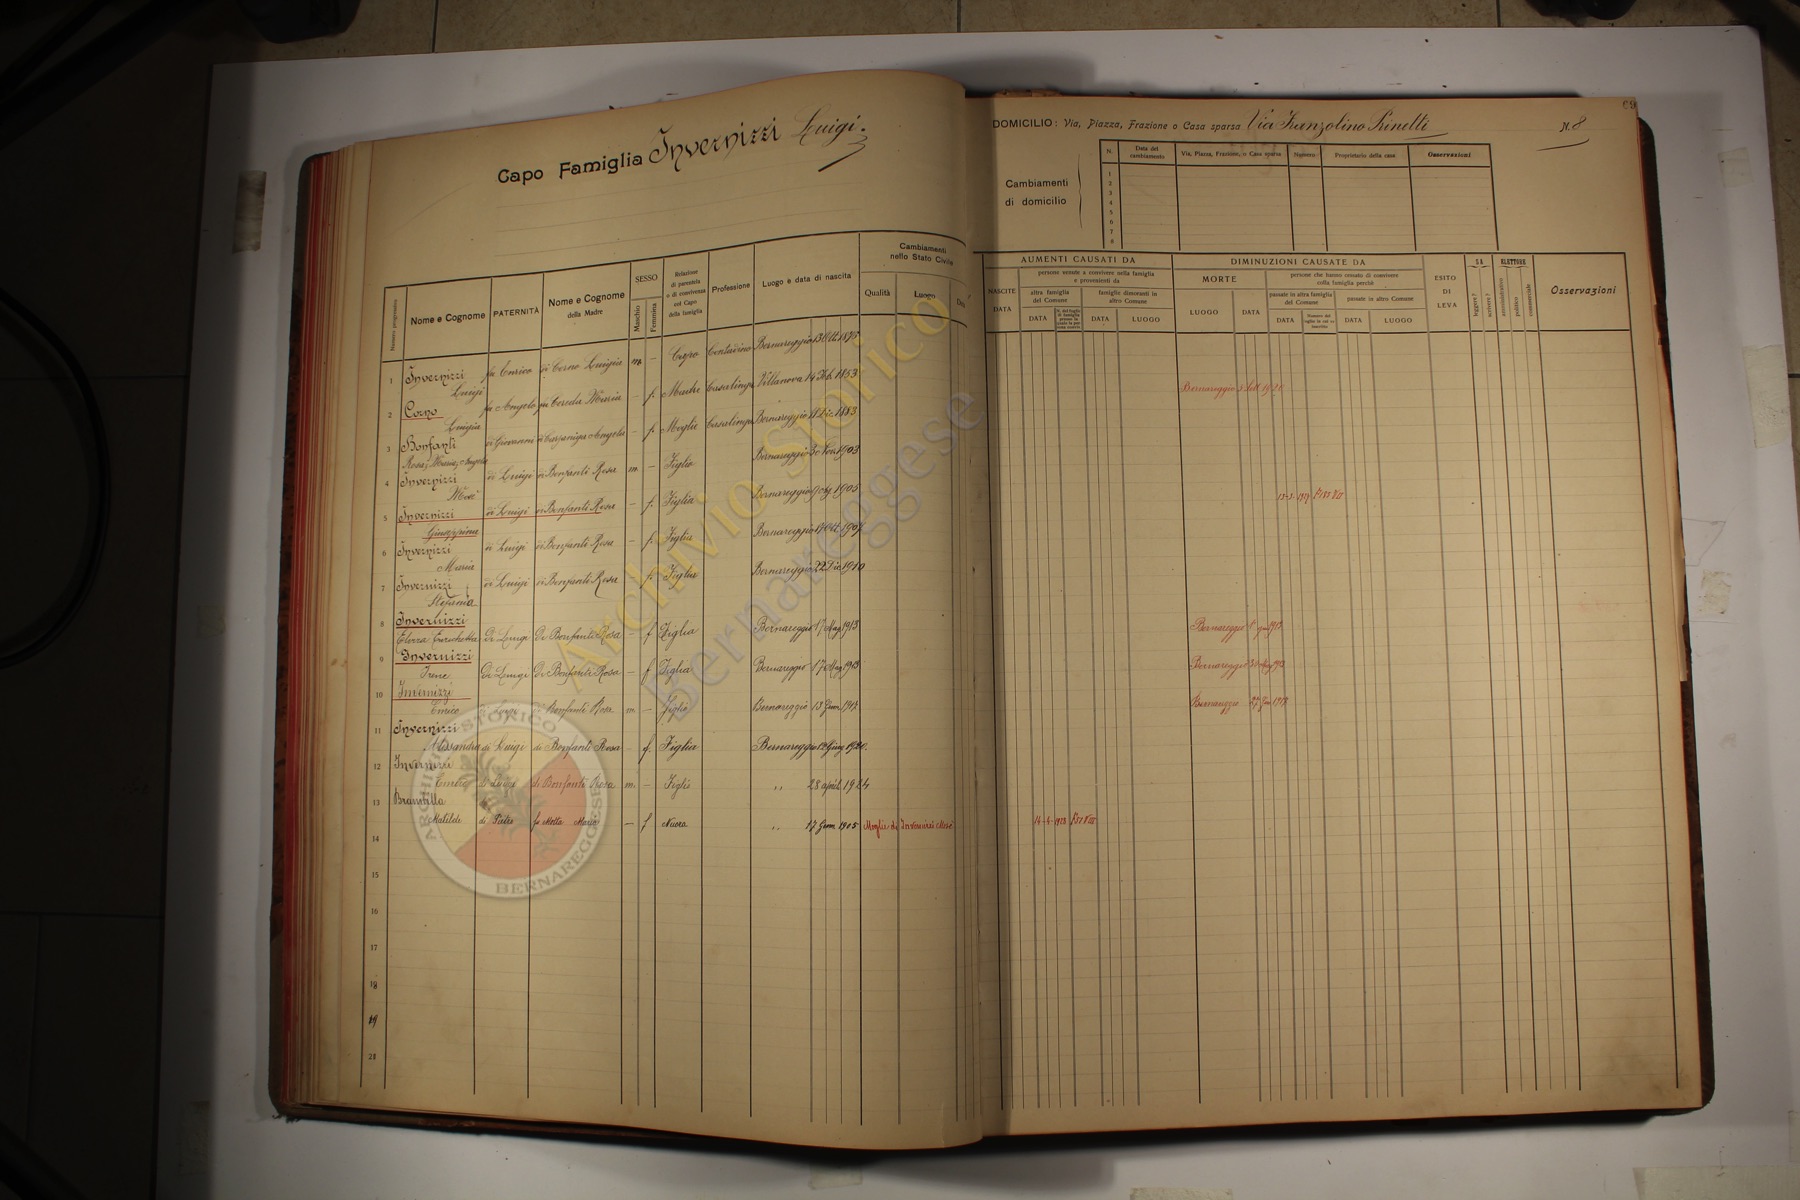 Capo Famiglia Invernizzi Luigi.
DOMICILIO: Via, Piazza, Frazione o Casa sparsa Via Franzolino Prinetti N. 8
69
Cambiamenti di domicilio
N. Data del cambiamento Via, Piazza, Frazione, o Casa sparsa Numero Proprietario della casa Osservazioni
1
2
3
4
5
6
7
8
Numero progressivo Nome e Cognome PATERNITÀ Nome e Cognome della Madre SESSO Maschio Femmina Relazione di parentela o di convivenza col Capo della famiglia Professione Luogo e data di nascita Cambiamenti nello Stato Civile Qualità Luogo Data
AUMENTI CAUSATI DA
NASCITE DATA
persone venute a convivere nella famiglia e provenienti da
altra famiglia del Comune DATA
famiglie dimoranti in altro Comune DATA LUOGO
DIMINUZIONI CAUSATE DA
MORTE LUOGO DATA
persone che hanno cessato di convivere colla famiglia perchè
passate in altra famiglia del Comune DATA
passate in altro Comune DATA LUOGO
ESITO DI LEVA
SA leggere? scrivere?
ELETTORE amministrativo politico commerciale
Osservazioni
1 Invernizzi Luigi fu Enrico di Corno Luigia m. — Capo Contadino Bernareggio 13 Ott. 1875
2 Corno Luigia fu Angelo di Cereda Maria — f. Madre Casalinga Villanova 14 Feb. 1853 Bernareggio 5
3 Bonfanti Rosa, Maria, Angela di Giovanni di Carpaniga Angela — f. Moglie Casalinga Bernareggio 18 Dic. 1883
4 Invernizzi Mosè di Luigi di Bonfanti Rosa m. — Figlio Bernareggio 30 Nov. 1903
5 Invernizzi Giuseppina di Luigi di Bonfanti Rosa — f. Figlia Bernareggio 9 1905
6 Invernizzi Maria di Luigi di Bonfanti Rosa — f. Figlia Bernareggio 17 Ott. 1907
7 Invernizzi Stefania di Luigi di Bonfanti Rosa f. Figlia Bernareggio 22 Dic 1910
8 Invernizzi Enrichetta Di Luigi Di Bonfanti Rosa — f Figlia Bernareggio 17 Mag 1913 Bernareggio
9 Invernizzi Irene Di Luigi Di Bonfanti Rosa — f Figlia Bernareggio 17 Mag 1913 Bernareggio
10 Invernizzi Enrico di Luigi di Bonfanti Rosa m — Figlio Bernareggio 13 Bernareggio 27
11 Invernizzi Alessandra di Luigi di Bonfanti Rosa — f. Figlia Bernareggio 12 Giug 1920.
12 Invernizzi Emilio di Luigi di Bonfanti Rosa m. — Figlio " 28 april. 1924
13 Brambilla Matilde di Pietro fu Motta Maria — f Nuora " 17 Genn 1905 Moglie di Invernizzi Mosè 14-4-1928
14
15
16
17
18
19
21
Archivio Storico
Bernareggese
ARCHIVIO STORICO
BERNAREGGESE